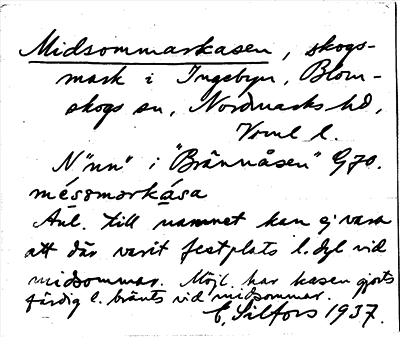 Midsommarkasen, skogs-
mark i Ingebyn, Blom-
skogs sn, Nordmarks hd,
Vrml l.
N"nn" i "Brännåsen" G70.
méssmɑrkása
Anl. till namnet kan ej vara
att där varit festplats l. dyl vid
midsommar. Möjl. har kasen gjorts
färdig l. bränts vid midsommar.
E. Silfors 1937.